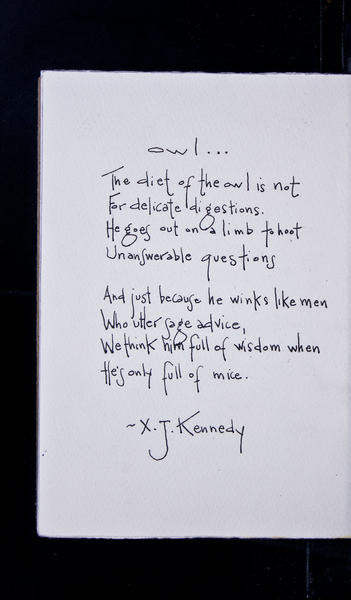 owl...
The diet of the owl is not
For delicate digestions.
He goes out on a limb to hoot
Unanswerable questions
And just because he winks like men
Who utter sage advice,
We think him full of wisdom when
He's only full of mice.
~ X. J. Kennedy